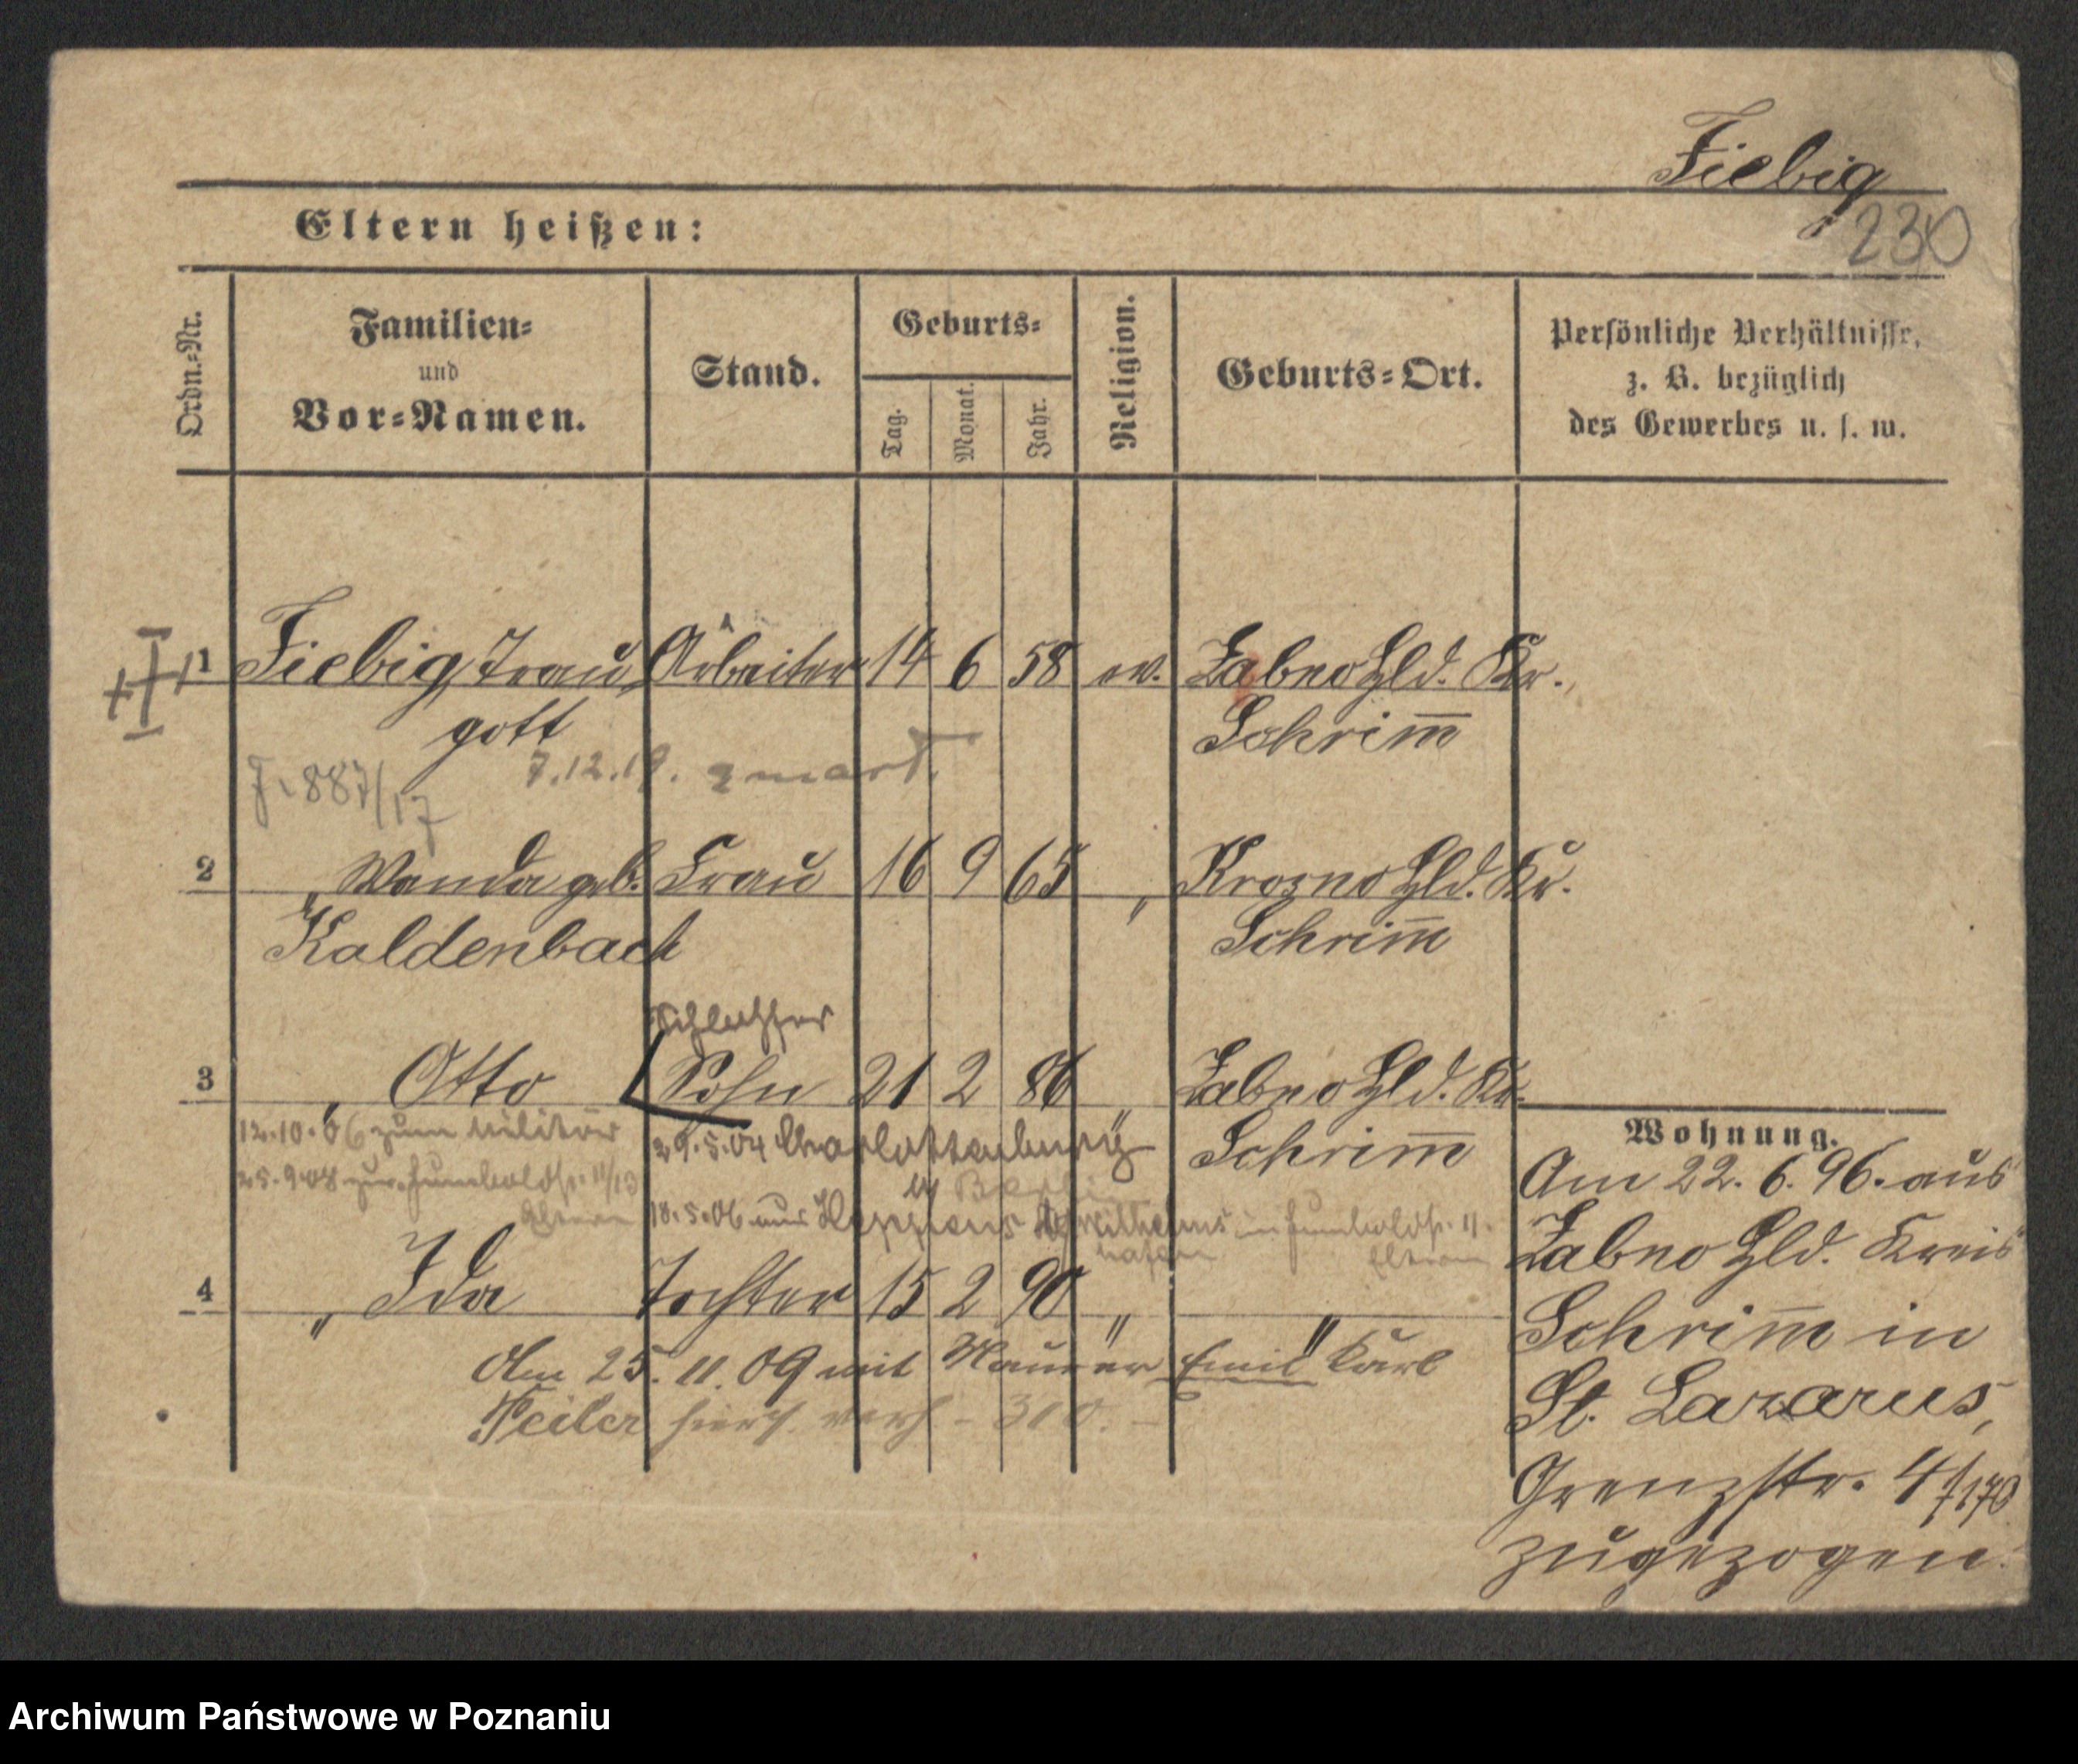 Fiebig
230
Eltern heißen:
Ordn.-Nr.
Familien-
und
Vor-Namen.
Stand.
Geburts-
Tag.
Monat.
Jahr.
Religion.
Geburts-Ort.
Persönliche Verhältnisse,
z. B. bezüglich
des Gewerbes u. s. w.
1 Fiebig, Trau- Arbeiter 14 6 58 ev. Zabno Hld. Kr.
gott Schrim̅
7.12.19. zmarł.
J. 887/17
2 " Wanda geb. Frau 16 9 65 " Krosno Hld. Kr.
Kaldenbach Schrim̅
Schlosser
3 " Otto Sohn 21 2 86 " Zabno Hld. Kr.
Schrim̅
12.10.06 zum Militär
29.5.04 Charlottenburg
25.9.08 zur. Humboldstr. 11/13
Berlin
Eltern
18.5.06 aus Heppens Wilhelms in Humboldtstr. 11.
hafen Eltern
4 " Ida Tochter 15 2 90 " "
Am 25.11.09 mit Maurer Emil Karl
Feiler verh. 310.
Wohnung.
Am 22.6.96. aus
Zabno Hld. Kreis
Schrim̅ in
St. Lazarus,
Grenzstr. 4/170
zugezogen.
Archiwum Państwowe w Poznaniu